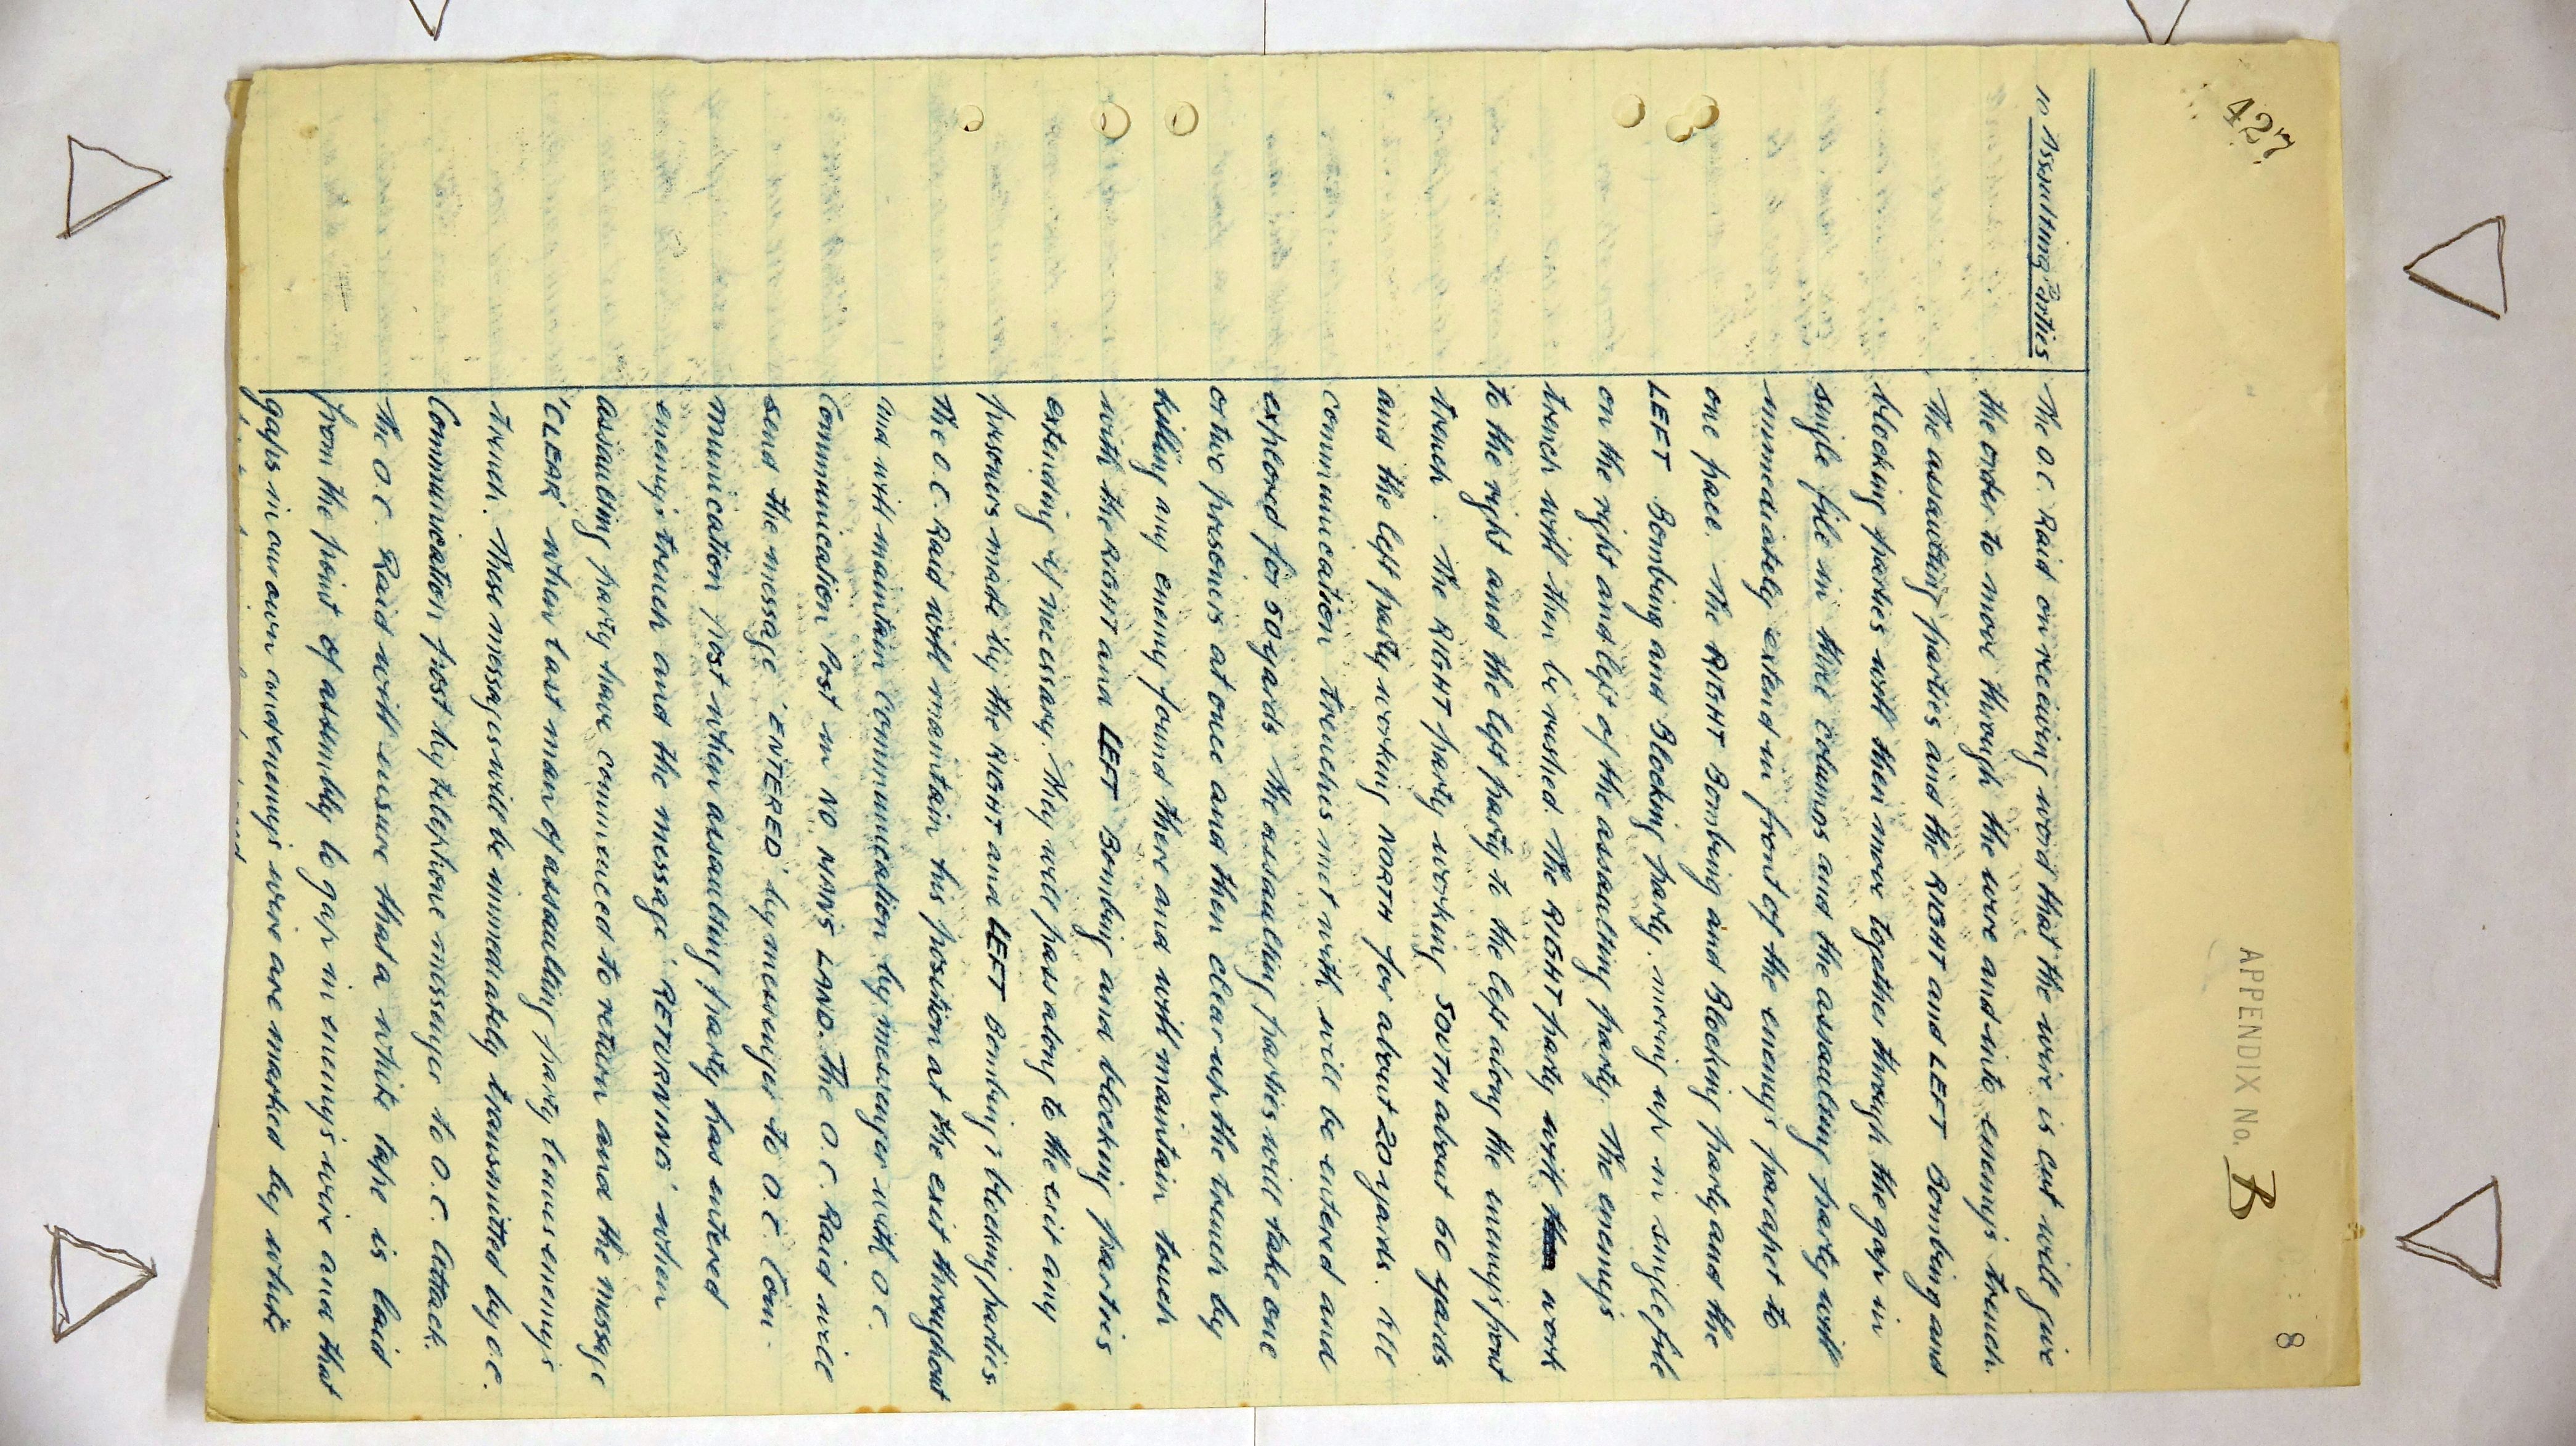 427
APPENDIX No. B
8
10 Assaulting Parties
The O.C. Raid on receiving word that the wire is cut will give
the order to move through the wire and into enemy's trench.
The assaulting parties and the RIGHT and LEFT Bombing and
blocking parties will then move together through the gap in
single file in three columns and the assaulting party will
immediately extend in front of the enemy's parapet to
one pace. The RIGHT Bombing and Blocking party and the
LEFT Bombing and Blocking party, moving up in single file
on the right and left of the assaulting party. The enemy's
trench will then be rushed. The RIGHT party will work
to the right and the left party to the left along the enemy's front
trench. The RIGHT party working SOUTH about 60 yards
and the left party working NORTH for about 20 yards. All
communication trenches met with will be entered and
explored for 50 yards. The assaulting parties will take one
or two prisoners at once and then clear up the trench by
killing any enemy found there and will maintain touch
with the RIGHT and LEFT Bombing and blocking parties
extending if necessary. They will pass along to the exit any
prisoners made by the RIGHT and LEFT Bombing & blocking parties.
The O.C. Raid will maintain his position at the exit throughout
and will maintain communication by messenger with O.C.
Communication Post in NO MAN'S LAND. The O.C. Raid will
send the message 'ENTERED' by messenger to O.C. Com-
munication post when assaulting party has entered
enemy's trench and the message 'RETURNING' when
assaulting party have commenced to return and the message
'CLEAR' when last man of assaulting party leaves enemy's
trench. These messages will be immediately transmitted by O.C.
Communication post by telephone messenger to O.C. Attack.
The O.C. Raid will ensure that a white tape is laid
from the point of assembly to gap in enemy's wire and that
gaps in our own and enemy's wire are marked by white